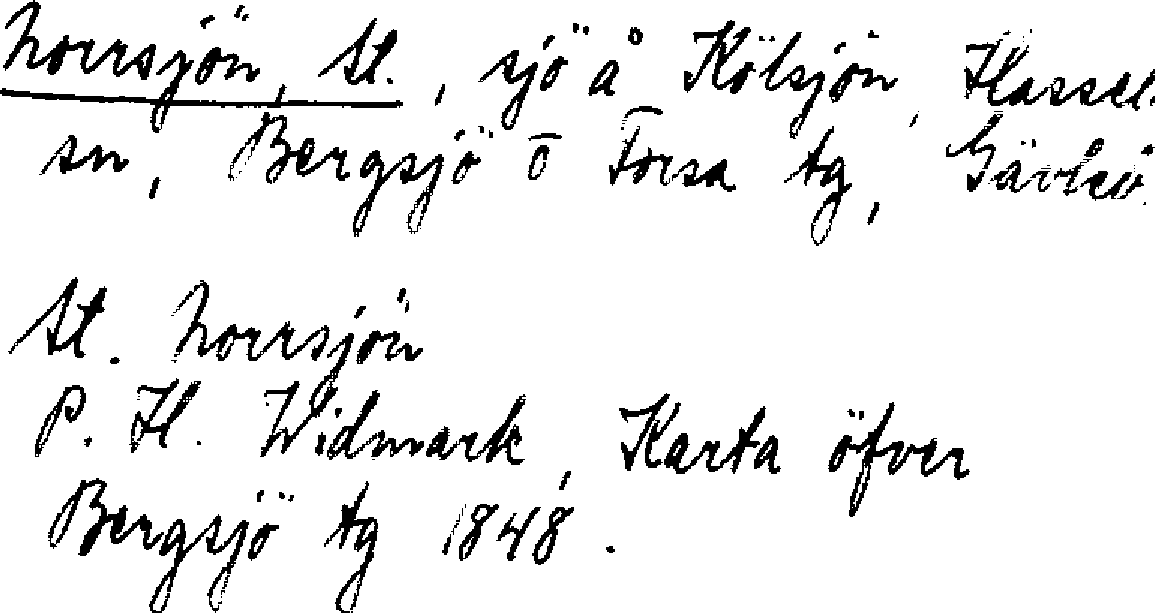 Norrsjön, St., sjö å Kölsjön, Hassel.
sn, Bergsjö o Forsa tg,
St. Norrsjön
P. H. Widmark, Karta öfver
Bergsjö tg 1848.